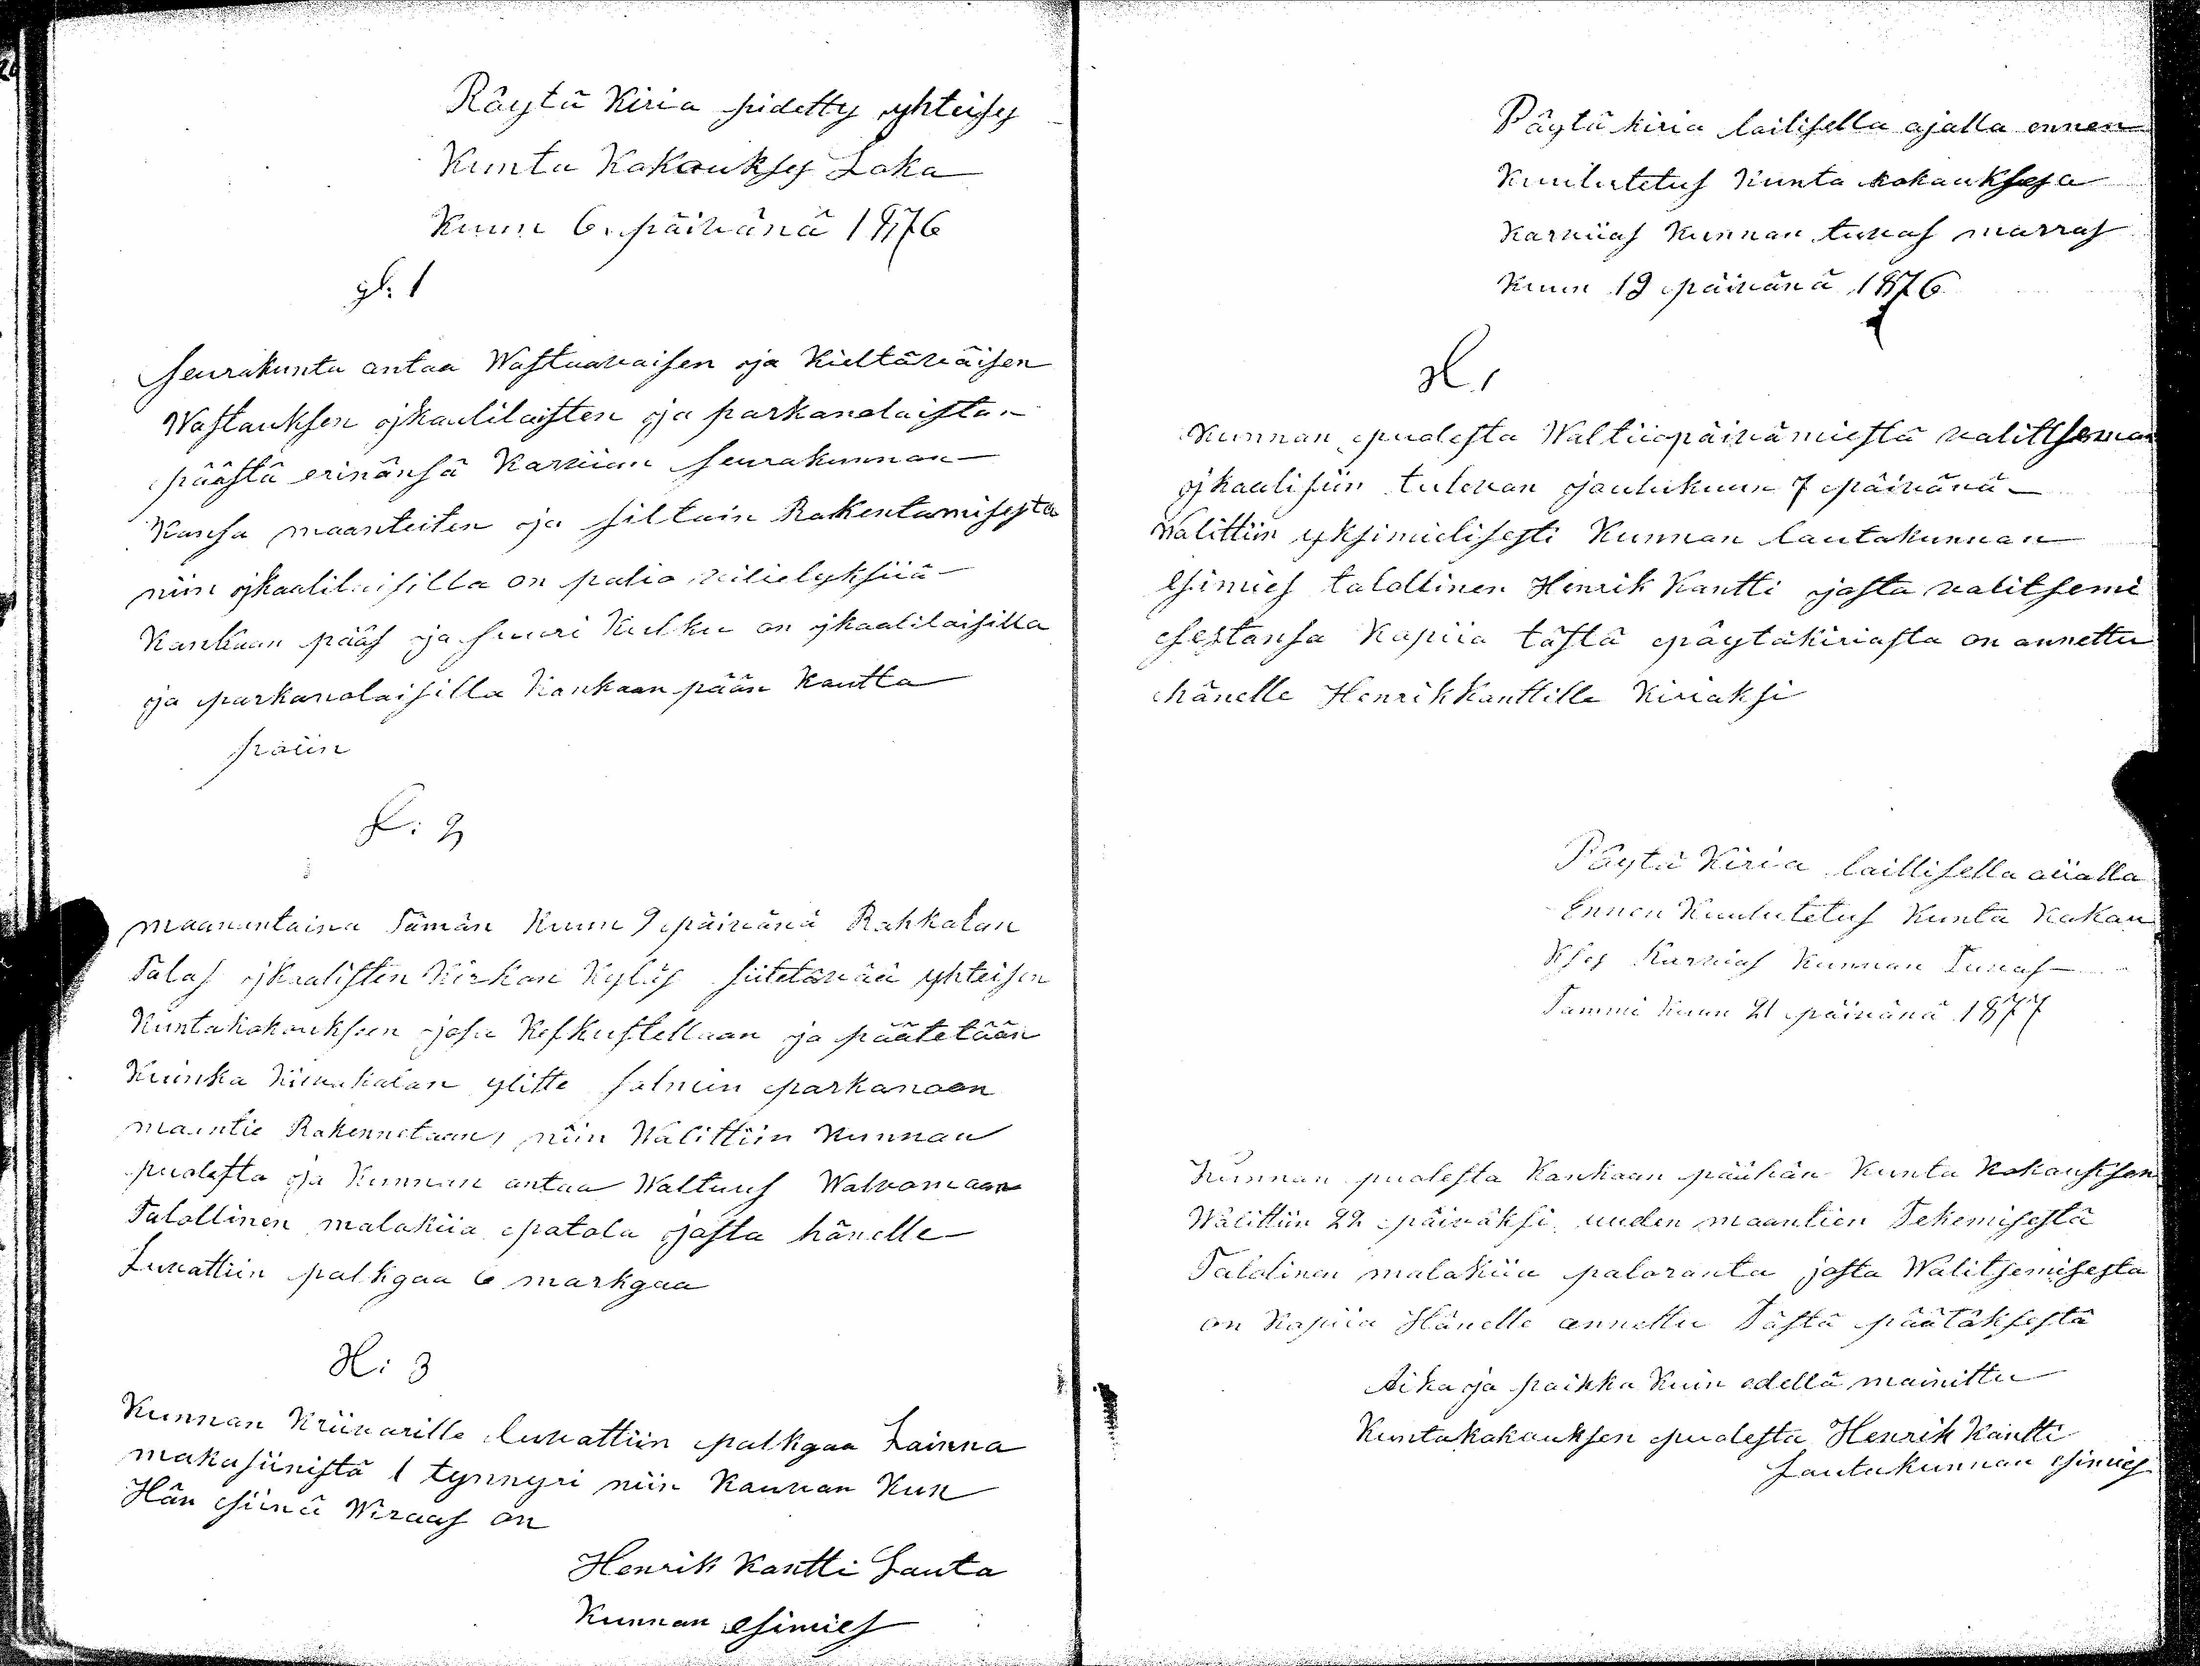 Pöytä Kiria pidetty yhteises
Kunta Kokoukses Loka
Kuun 6. päivänä 1876
§: 1
Seurakunta antaa Wastaavaisen ja Kieltäväisen
Wastauksen jkaalilaisten ja parkanolaisten
päästä erinänsä Karvian seurakunnan
Kansa maanteiten ja siltain Rakentamisesta
niin jkaalilaisilla on palio vilielyksiiä
Kankaan pääs ja suuri Kulku on jkaalilaisilla
ja parkanolaisilla Kankaan pään Kautta
päiin
§: 2
maanantaina Tämän Kuun 9 päivänä Rahkalan
Talos jkaalisten Kirkon Kyläs piitetävää yhteisen
Kuntakokouksen josa Keskustellaan ja päätetään
Kuinka Kiwakalan ylitte salmin parkanoon
maantie Rakennetaan, niin Walittiin Kunnan
puolesta ja Kunnan antaa Waltuus Walvomaan
Talollinen malakiia patola josta hänelle
Luvattiin palkgaa 6 markgaa
§: 3
Kunnan Kriivarille luvattiin palkgaa Lainna
makasiinistä 1 tynnyri niin Kauvan Kuk
Hän siinä Wiraas on
Henrik Kantti Lauta
Kunnan esimies
26
Pöytä kiria lailisella ajalla ennen
Kuulutetus Kunta kokouksesa
Karviias Kunnan tuvas marras
Kuun 19 päivänä 1876
§ 1
Kunnan puolesta Waltiiopäivämiestä valittseman
jkaalisiin tulevan joulukuun 7 päivänä
Walittiin yksimielisesti Kunnan lautakunnan
esimies talollinen Henrik Kantti josta valitsemi
sestansa Kapiia tästä pöytäkiriasta on annettu
hänelle Henrik Kanttille Kiriaksi
Pöytä Kiria laillisella aiialla
Ennen Kuulutetus Kunta Kokou
Kses Karvias Kunnan Tuvas
Tammi Kuun 21 päivänä 1877
Kunnan puolesta Kankaan päähän Kunta Kokouksen
Walittiin 22 päiväksi uuden maantien Tekemisestä
Talolinen malakiia paloranta josta Walitsemisesta
on Kapiia Hänelle annettu Tästä päätöksestä
Aika ja paikka Kuin edellä mainittu
Kuntakokouksen puolesta Henrik Kantti
Lautakunnan esimies